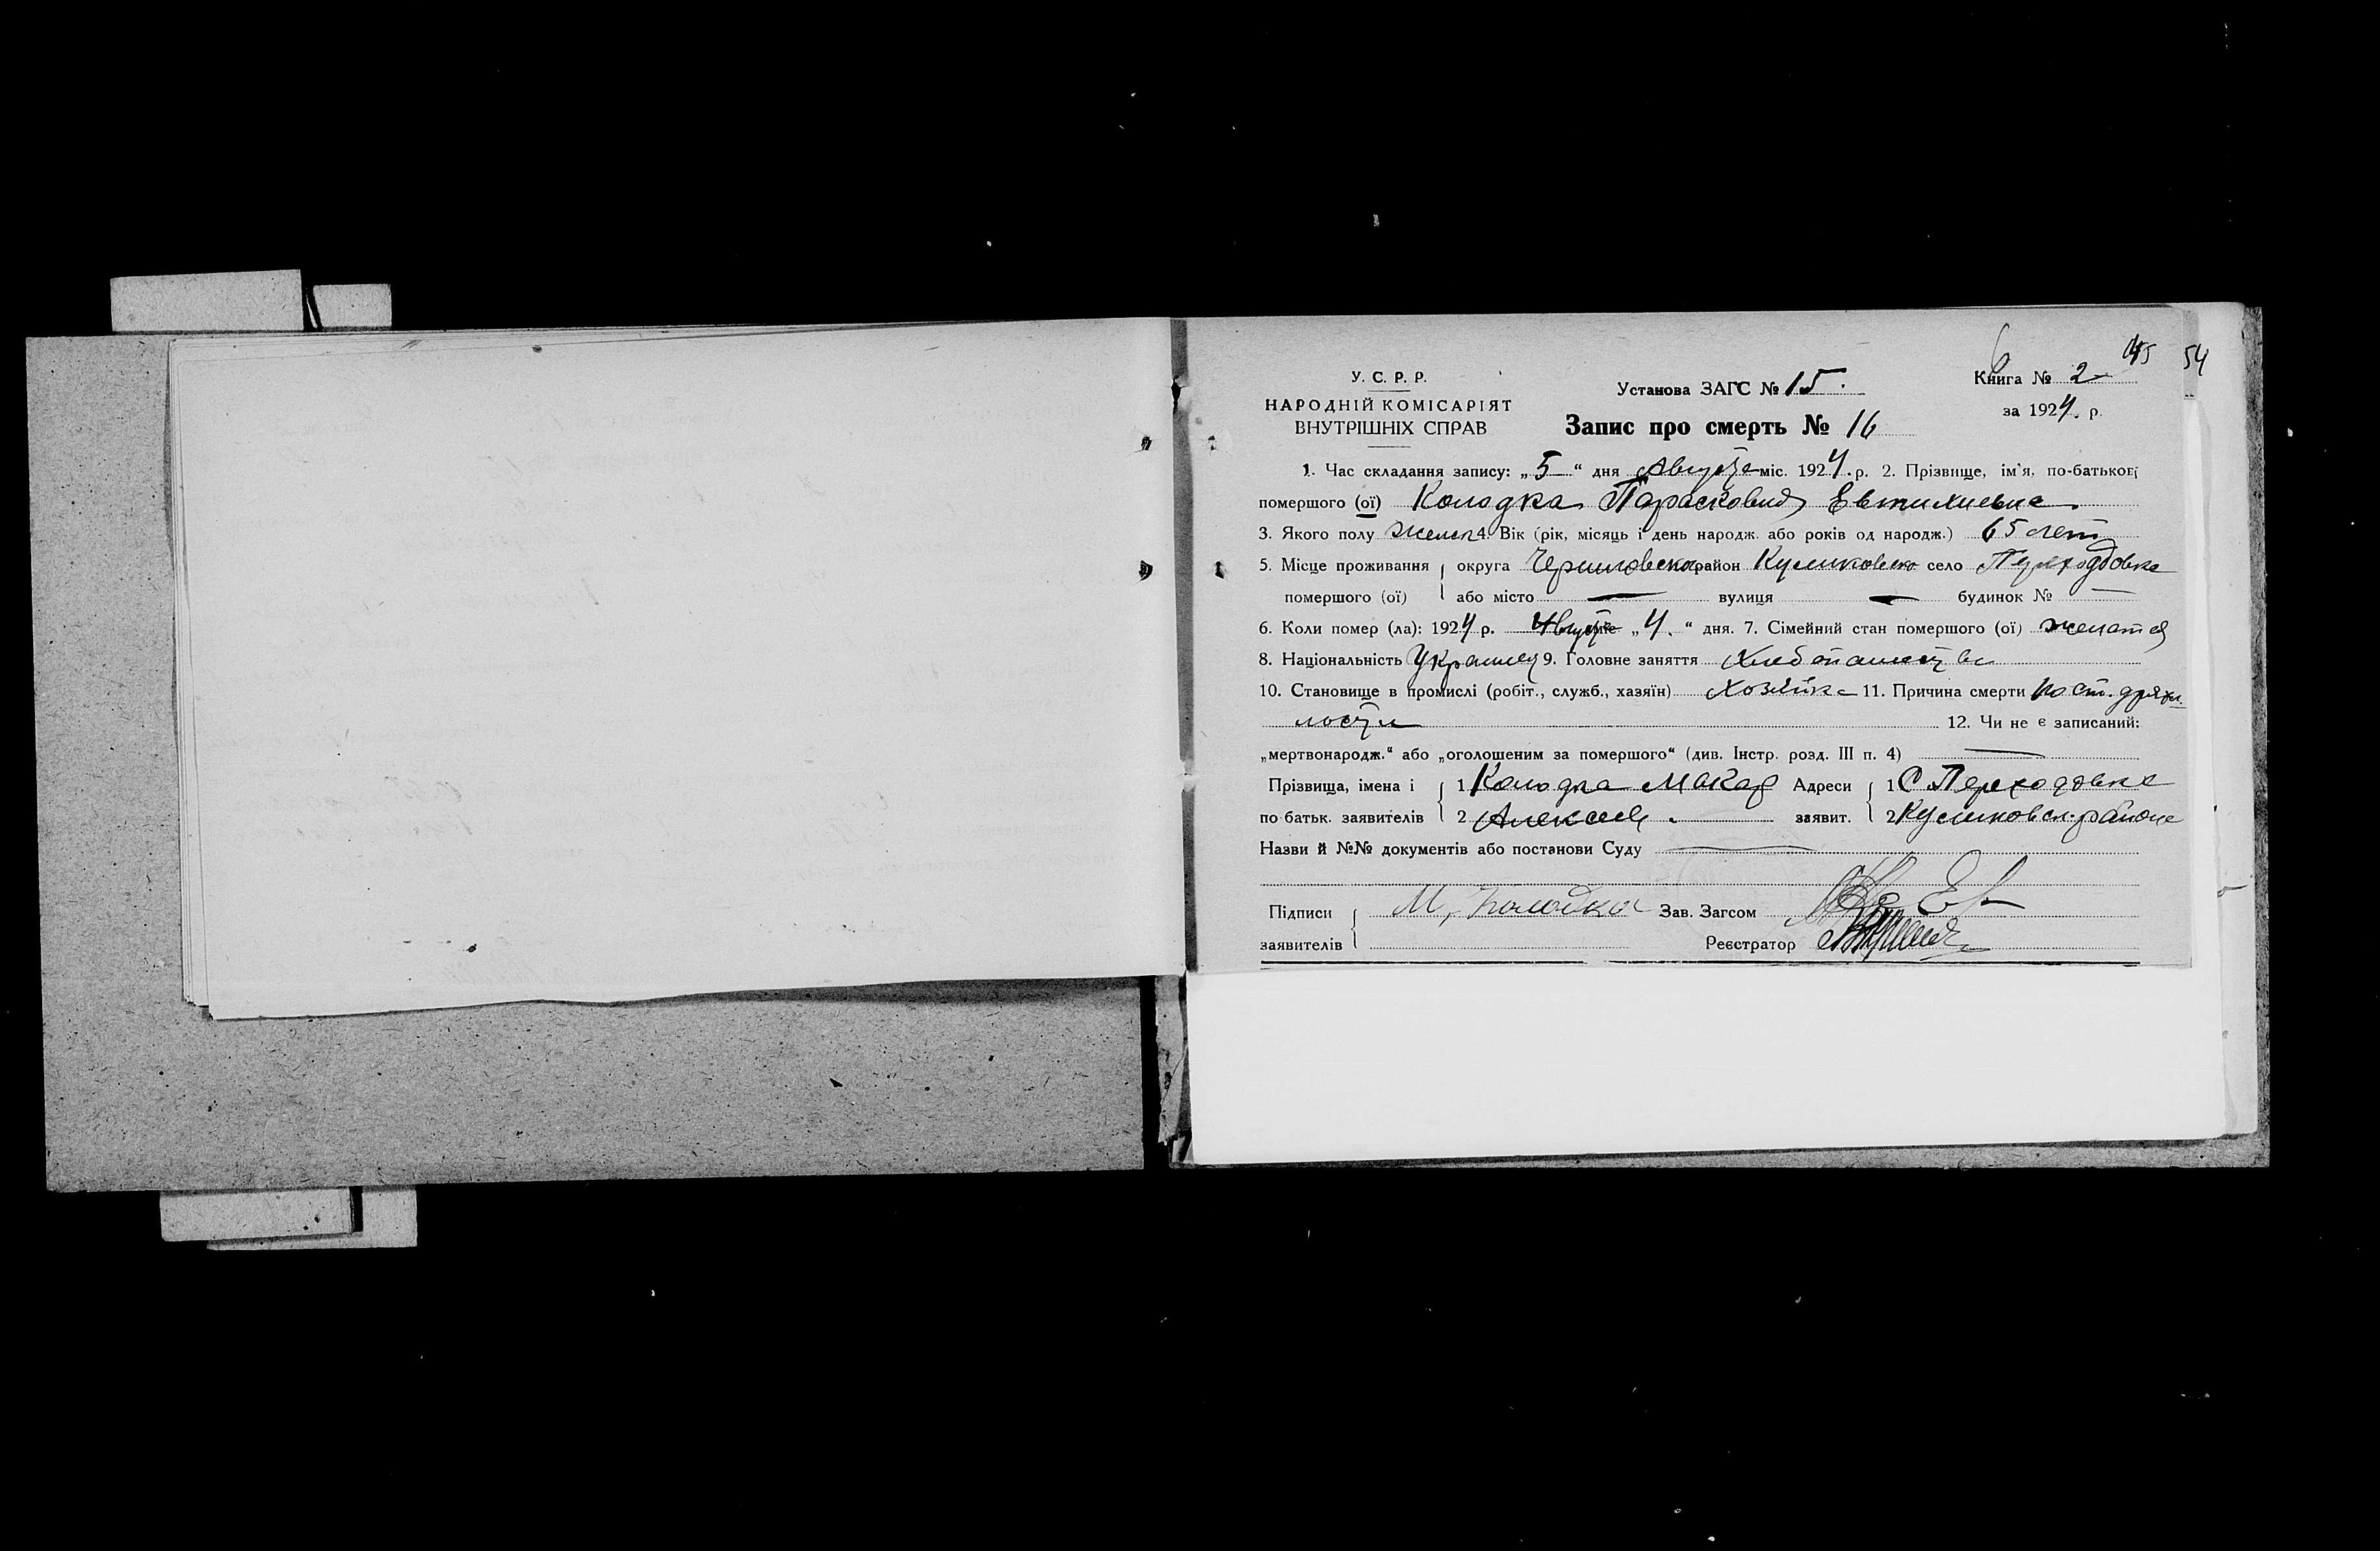 6 45 54
У. С. Р. Р. Установа ЗАГС № 15. Книга № 2
НАРОДНІЙ КОМІСАРІЯТ за 1924. р.
ВНУТРІШНІХ СПРАВ Запис про смерть № 16
1. Час складання запису: „5“ дня Августа міс. 1924. р. 2. Прізвище, ім'я, по-батькові
помершого (ої) Колодка Парасковия Евтихиевна
3. Якого полу женск 4. Вік (рік, місяць і день народж. або років од народж.) 65 лет
5. Місце проживання округа Черниговская район Куликовско село Переходовка
помершого (ої) або місто — вулиця — будинок № —
6. Коли помер (ла): 1924 р. Августа „4.“ дня. 7. Сімейний стан помершого (ої) женатая
8. Національність 9. Головне заняття Хлебопашество
10. Становище в промислі (робіт., служб., хазяїн) Хозяйка 11. Причина смерти дряхл.
лости 12. Чи не є записаний:
„мертвонародж.“ або „оголошеним за помершого“ (див. Інстр. розд. III п. 4) —
Прізвища, імена і 1 Колодка Макар Адреси 1 С Переходовка
по батьк. заявителів 2 Алексеев. заявит. 2 Куликовск. района
Назви й №№ документів або постанови Суду —
Підписи М, Колодка Зав. Загсом
заявителів Реєстратор